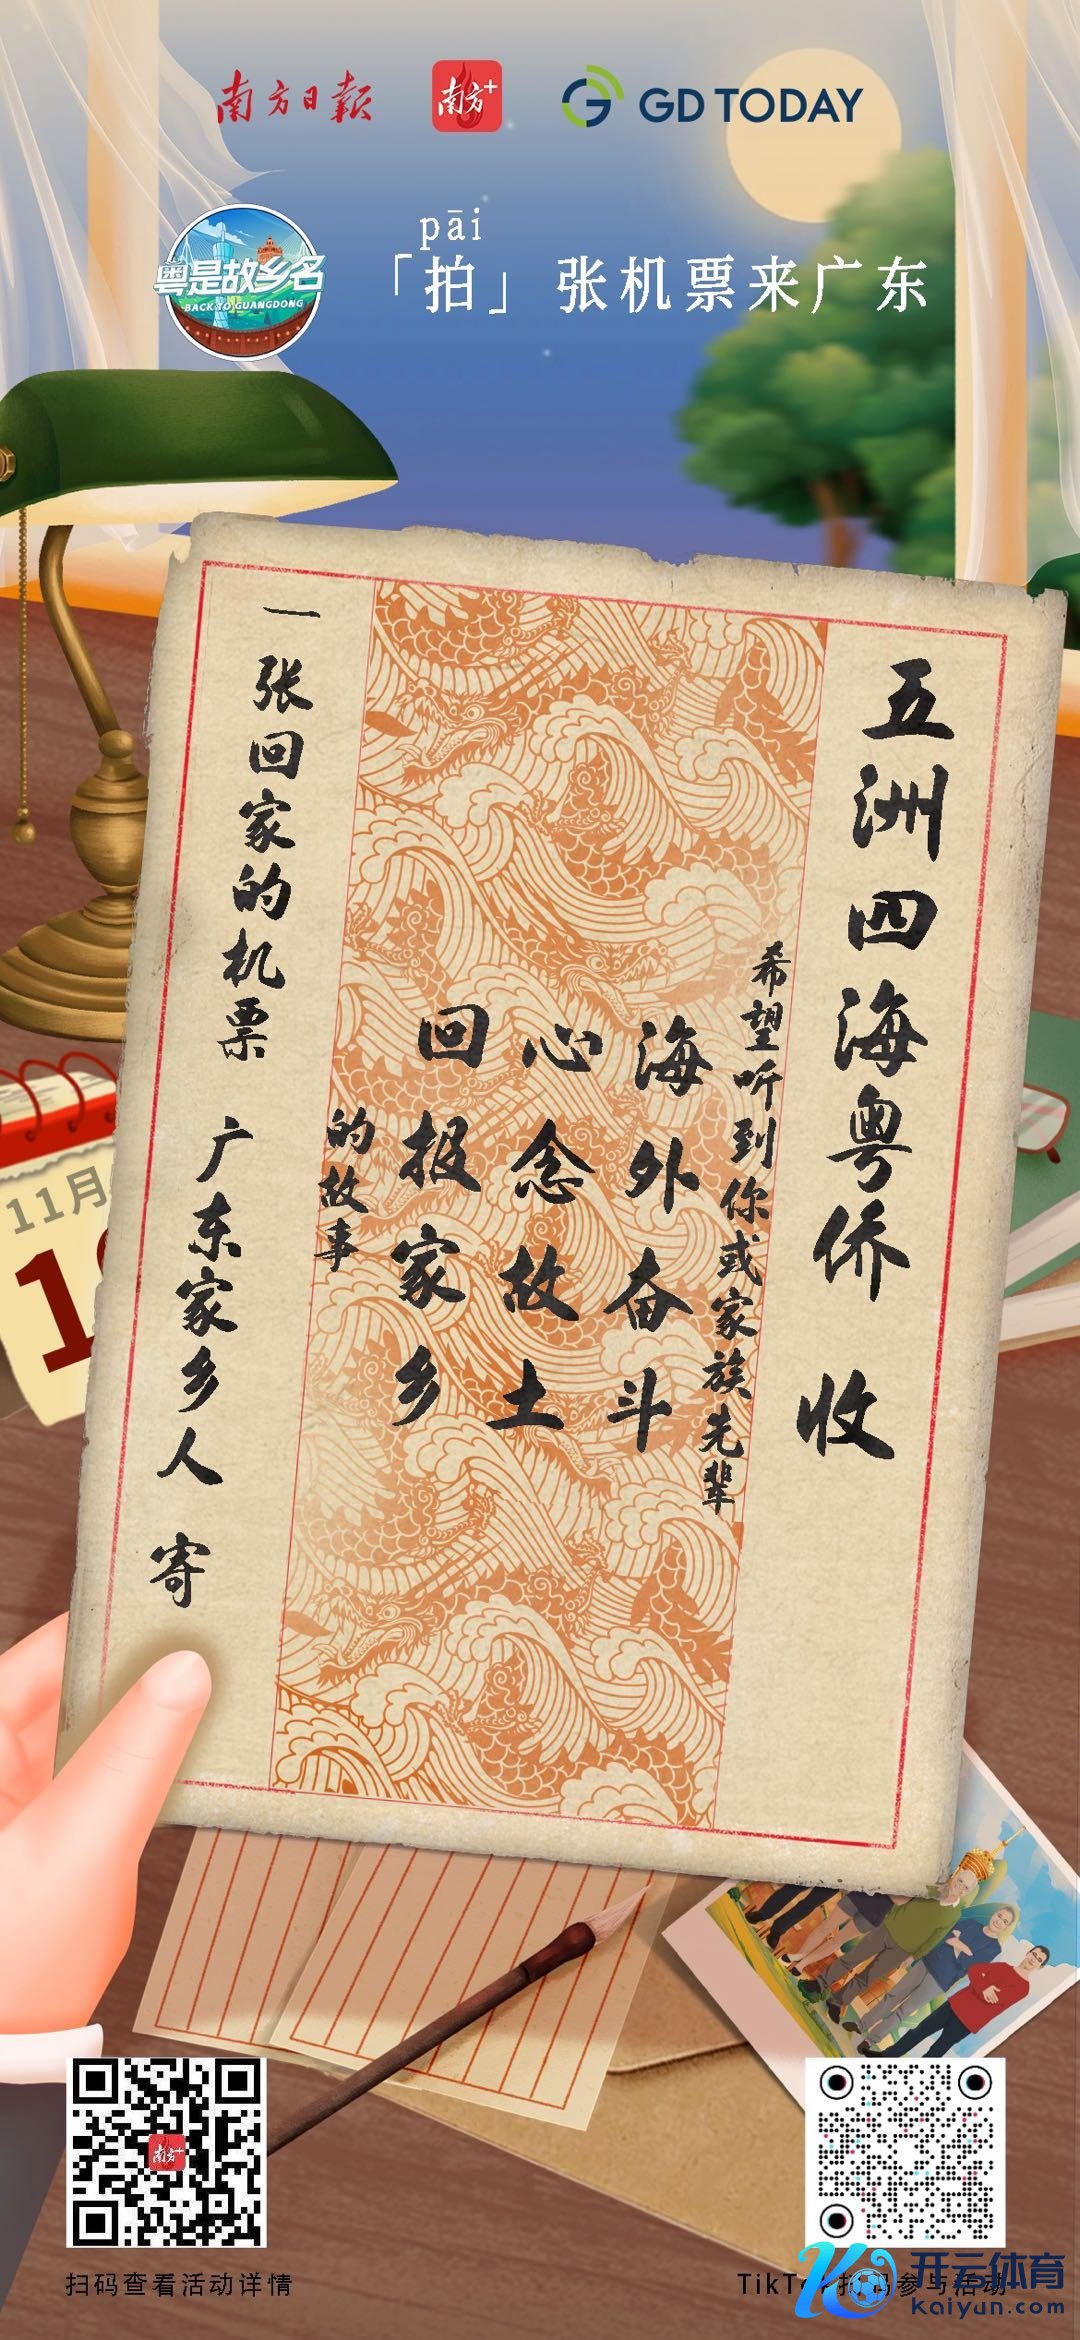 南方日报
南方+
GD TODAY
粤是故乡名
BACK TO GUANGDONG
pāi
「拍」张机票来广东
五洲四海粤侨 收
希望听到你或家族先辈
海外奋斗
心念故土
回报家乡
的故事
一张回家的机票 广东家乡人 寄
11月
南方+
扫码查看活动详情
TikTok扫码参与活动
开云体育
kaiyun.com